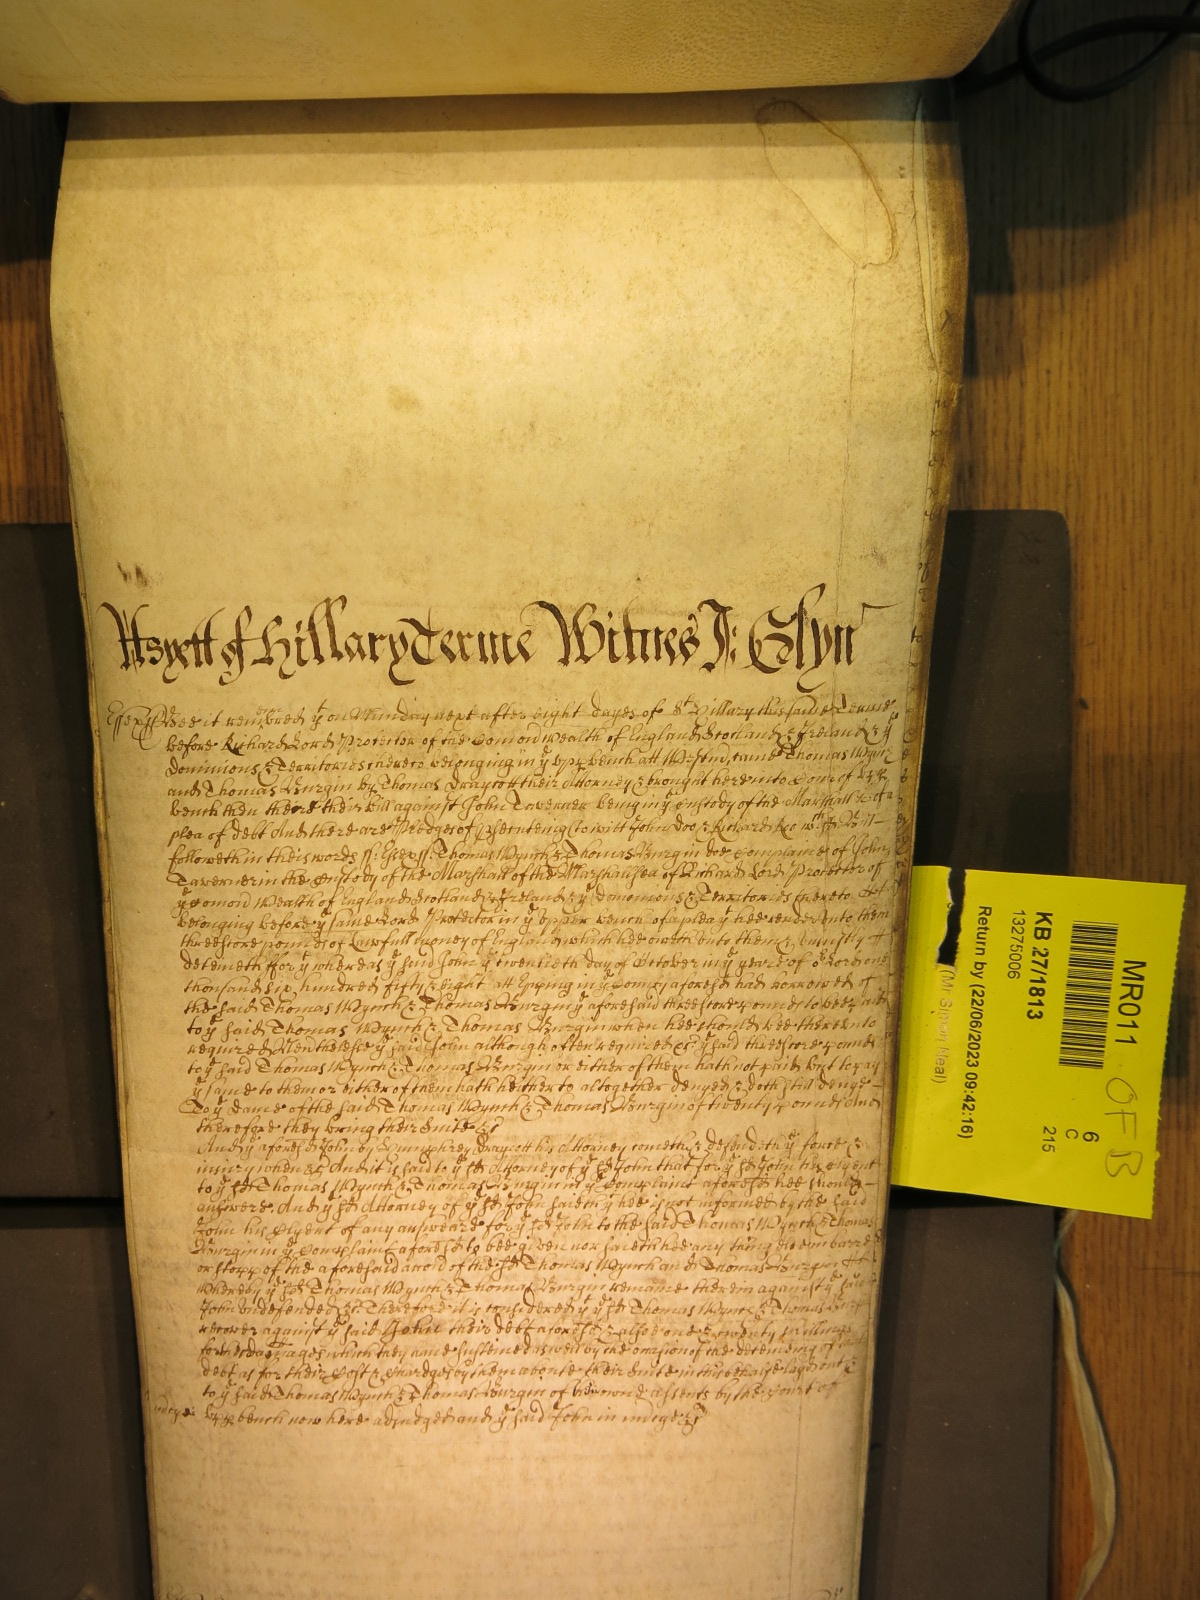 As yett of Hillary Terme Witnes Jo: Glyn
Essex ss Bee it remembred yt on Munday next after eight dayes of St Hillary this same Terme
before Richard Lord Protector of the Comonwealth of England Scotland & Ireland & ye
dominions & Territories thereto belonging in ye upper bench att Westm came Thomas Wynch
and Thomas Burgin by Thomas Draycott their Attorney & brought here into Court of upper
bench then there their bill against John Taverner being in ye Custody of the Marshall &c of a
plea of debt And there are Pledges of prosecuteing (to witt) John Doo & Richard Roo wch Bill
followeth in theis words ss: Essex ss: Thomas Wynch & Thomas Burgin doe Complaine of John
Taverner in the Custody of the Marshall of the Marshalsea of Richard Lord Protector of
ye Comon Wealth of England Scotland & Ireland & ye domonions & Territories thereto
belonging before ye same Lord Protector in ye upper bench of a plea yt hee render unto them
threescore pounds of lawfull money of England which hee oweth unto them & uniustly
deteineth ffor yt whereas ye said John ye twentieth day of October in ye yeare of or Lord one
thousand six hundred fifty & eight att Epping in ye County aforesd had borrowed of
the said Thomas Wynch & Thomas Burgin ye aforesaid threescore pounds to bee paid
to ye said Thomas Wynch & Thomas Burgin when hee should bee thereunto
required Neverthelesse ye said John although often required &c ye said threescore pounds
to ye said Thomas Wynch & Thomas Burgin or either of them hath not paid but to pay
ye same to them or either of them hath hitherto altogether denyed & doth still denye
To ye dam̄e of the said Thomas Wynch & Thomas Burgin of twenty pounds And
therefore they bring their Suite &c
And ye aforesd John by Humphrey Draycott his Attorney cometh & defendeth ye force &
iniury when &c And it is said to ye sd Attorney of ye sd John that for ye sd John his Clyent
to ye sd Thomas Wynch & Thomas Burgin in ye Complaint aforesd hee should
answere And ye sd Attorney of ye sd John saith yt hee is not informed by the said
John his Clyent of any answeare for ye sd John to the said Thomas Wynch & Thomas
Burgin in ye Complaint aforesd to bee given nor saieth hee any thing else in barre
or stopp of the aforesaid accōn of the sd Thomas Wynch and Thomas Burgin
Whereby ye sd Thomas Wynch & Thomas Burgin remaine therein against ye said
John Undefended &c Therefore it is considered yt ye sd Thomas Wynch & Thomas Burgin
recover against ye said John their debt aforesd & alsoe one & twenty shillings
for the damages which they have susteined aswell by the occasion of the deteineing of
debt as for their Costs & chardges by them aboute their Suite in this behalfe layd out
to ye said Thomas Wynch & Thomas Burgin of their owne assents by the Court of
upper bench now here adiudged and ye said John in mercy &c
MR011
6
C
215
KB 27/1813
13275006
Return by (22/06/2023 09:42:16)
(Mr Simon Neal)
OF B